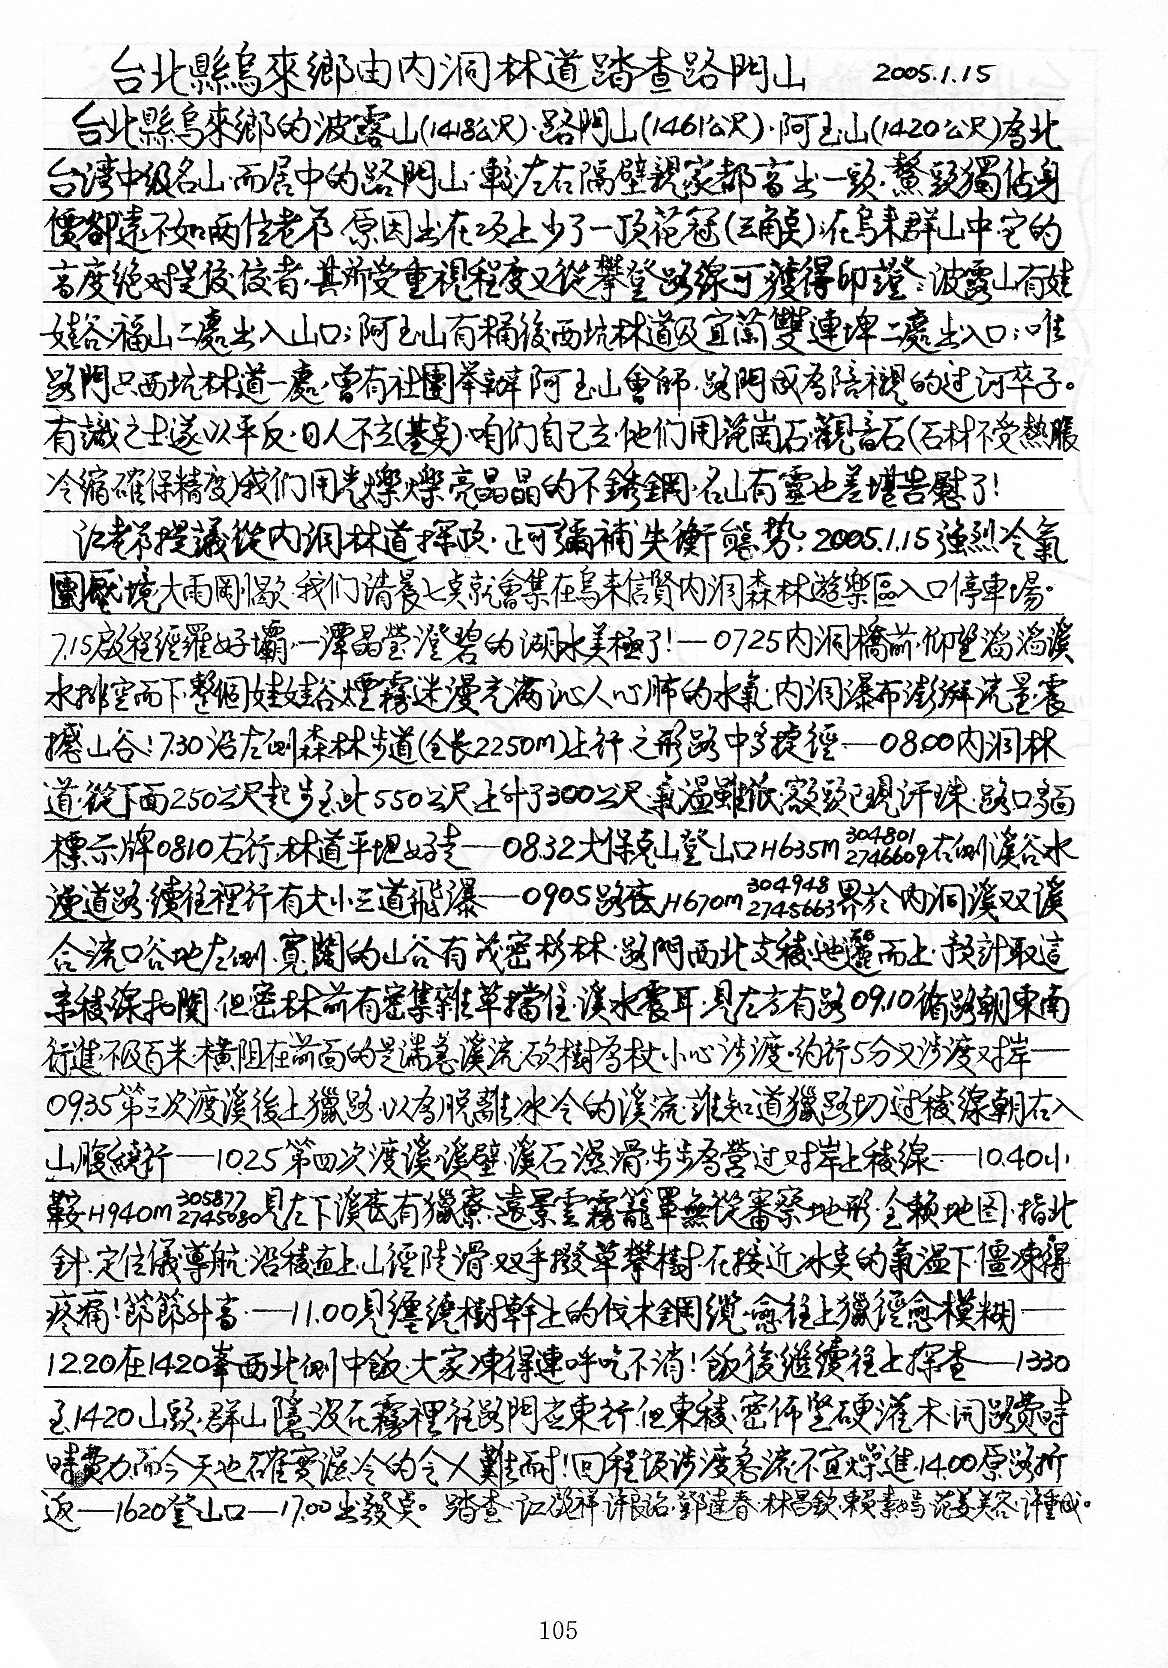 台北縣烏來鄉由內洞林道踏查路門山 2005.1.15
台北縣烏來鄉的波露山(1418公尺)·路門山(1461公尺)·阿玉山(1420公尺)為北
台湾中級名山·而居中的路門山·較左右隔壁親家都高出一頭·鰲頭獨佔身
價卻遠不如兩位老爷 原因出在项上少了一頂花冠(三角点);在烏來群山中它的
高度绝对是佼佼者,其所受重視程度又從攀登路線可獲得印證:波露山有娃
娃谷·福山二處出入山口;阿玉山有桶後·西坑林道及宜蘭雙連埤二處出入口;唯
路門只西坑林道一處,曾有社團举辦阿玉山會師,路門成為陪襯的过河卒子。
有識之士遂以平反·日人不立(基点)·咱们自己立·他们用花崗石·觀音石(石材不受熱脹
冷縮確保精度)我们用光燦燦亮晶晶的不銹鋼·名山有靈也差堪告慰了!
江老爷提議從內洞林道探頂·正可彌補失衡態势;2005.1.15強烈冷氣
團壓境大雨剛歇·我们清晨七点就會集在烏来信賢內洞森林遊樂區入口停車場。
7.15啟程經羅好壩·一潭晶瑩澄碧的湖水美極了!—0725內洞橋前·仰望滔滔溪
水排空而下·整個娃娃谷煙霧迷漫充满沁人心肺的水氣·內洞瀑布澎湃流量震
撼山谷!7.30沿左側森林步道(全長2250m)上行之形路中多捷徑—08.00內洞林
道·從下面250公尺起步至此550公尺上升了300公尺·氣温雖低·額頭已現汗珠·路口多面
標示牌0810右行·林道平坦好走—0832大保克山登山口H635M 304801 2746609右側溪谷水
漫道路·續往裡行有大小三道飛瀑—0905路底H670m 304948 2745663界於內洞溪双溪
合流口谷地左側·寬闊的山谷有茂密杉林·路門西北支稜迤邐而上·預計取這
条稜線扣關·但密林前有密集雜草擋住·溪水震耳·見左方有路0910循路朝東南
行進·不及百米·橫阻在前面的是湍急溪流·砍樹為杖小心涉渡·约行5分又涉渡对岸—
0935第三次渡溪後上獵路·以為脱離冰冷的溪流·誰知道獵路切过稜線朝右入
山腹繞行—1025第四次渡溪·溪壁·溪石濕滑·步步為營过对岸上稜線—10.40小
鞍H940m 305877 2745080見左下溪底有獵寮·遠景雲霧籠罩無從審察地形·全賴地图·指北
針·定位儀導航·沿稜直上·山徑陡滑·双手撥草攀樹·在接近冰点的氣温下·僵凍得
疼痛!節節升高·—11.00見纏繞樹幹上的伐木鋼纜·愈往上獵徑愈模糊—
12.20在1420峯西北側中飯·大家凍得連呼吃不消!飯後繼續往上探查—1330
至1420山頭·群山隱没在霧裡往路門應東行·但東稜·密佈堅硬灌木·開路費時
費力而今天也確實濕冷的令人難耐!回程須涉渡急流·不宜燥進·14.00原路折
返—1620登山口—17.00出發点。踏查:江啟祥·許良洺·鄧達春·林昌欽·賴素嫣·范姜美容·許重成。
105